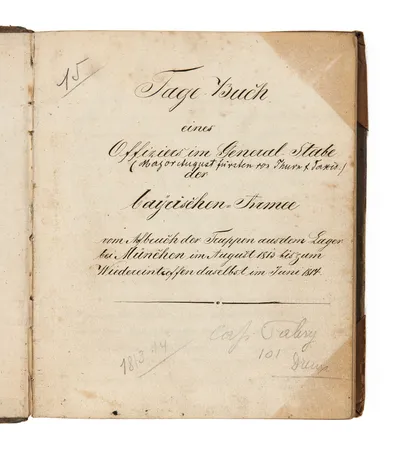 15
Tage Buch
eines
Offiziers im General-Stabe
(Major August fürsten von Thurn & Taxis.)
der
bayrischen-Armee
vom Aufbruch der Truppen aus dem Lager
bei München im August 1813 bis zum
Wiedereintreffen daselbst im Juni 1814.
1813-14
101